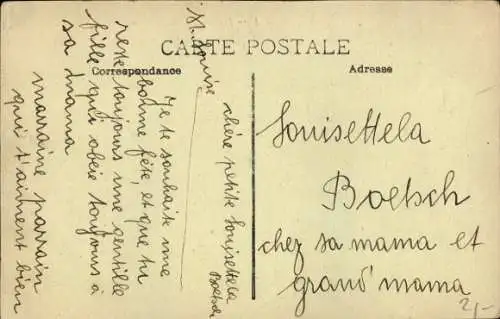 CARTE POSTALE
Correspondance
Adresse
St Louise
chère petite Louisettela
Boetsch
Je te souhaite une
bonne fête, et que tu
reste toujours une gentille
fille qui obéie toujours à
sa mama
marraine parrain
qui t'aiment bien
Louisettela
Boetsch
chez sa mama et
grand'mama
2/-